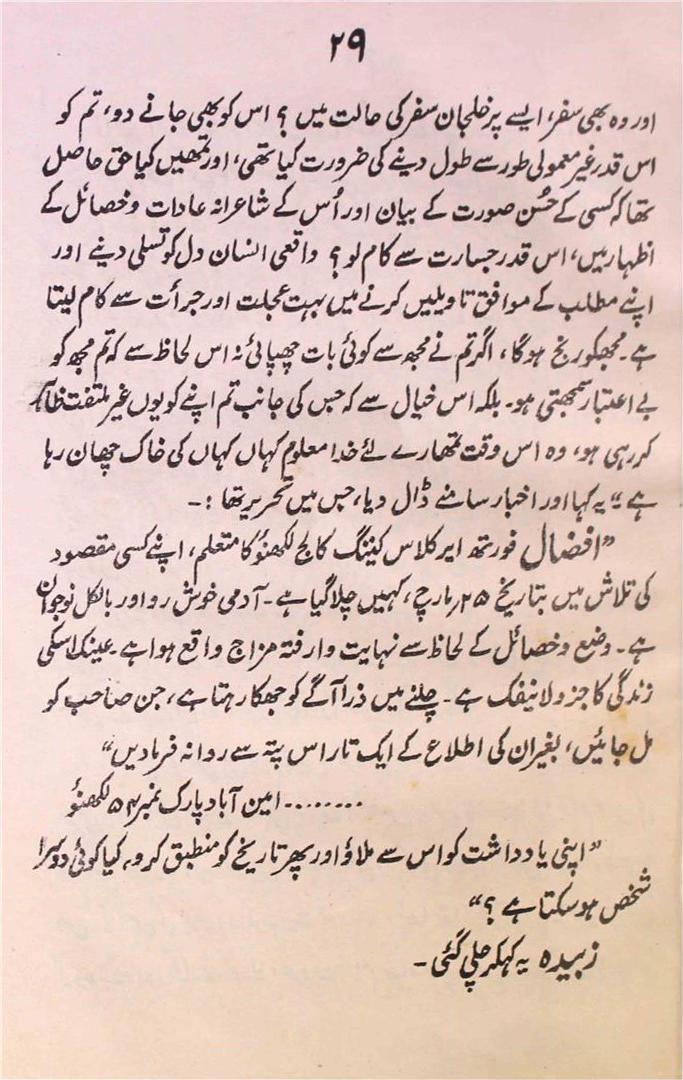 ۲۹
اور وہ بھی سفر، ایسے پر خلجان سفر کی حالت میں ؟ اس کو بھی جانے دو، تم کو
اس قدر غیر معمولی طور سے طول دینے کی ضرورت کیا تھی، اور تمھیں کیا حق حاصل
تھا کہ کسی کے حُسن صورت کے بیان اور اُس کے شاعرانہ عادات و خصائل کے
اظہار میں، اس قدر جسارت سے کام لو؟ واقعی انسان دل کو تسلی دینے اور
اپنے مطلب کے موافق تاویلیں کرنے میں بہت عجلت اور جرأت سے کام لیتا
ہے۔ مجھکو رنج ہوگا، اگر تم نے مجھ سے کوئی بات چھپائی نہ اس لحاظ سے کہ تم مجھ کو
بے اعتبار سمجھتی ہو۔ بلکہ اس خیال سے کہ جس کی جانب تم اپنے کو یوں غیر ملتفت ظاہر
کر رہی ہو، وہ اس وقت تمھارے لئے خدا معلوم کہاں کہاں کی خاک چھان رہا
ہے“ یہ کہا اور اخبار سامنے ڈال دیا، جس میں تحریر تھا :۔
”افضال فورتھ ایر کلاس کیننگ کالج لکھنؤ کا متعلم، اپنے کسی مقصود
کی تلاش میں بتاریخ ۲۵ مارچ، کہیں چلا گیا ہے۔ آدمی خوش رو اور بالکل نوجوان
ہے۔ وضع و خصائل کے لحاظ سے نہایت وارفتہ مزاج واقع ہوا ہے۔ عینک اسکی
زندگی کا جزو لاینفک ہے۔ چلنے میں ذرا آگے کو جھکا رہتا ہے، جن صاحب کو
مل جائیں، بغیر ان کی اطلاع کے ایک تار اس پتہ سے روانہ فرمادیں“
........ امین آباد پارک نمبر ۵۴ لکھنؤ
”اپنی یادداشت کو اس سے ملاؤ اور پھر تاریخ کو منطبق کرو، کیا کوئی دوسرا
شخص ہو سکتا ہے ؟“
زبیدہ یہ کہکر چلی گئی ۔